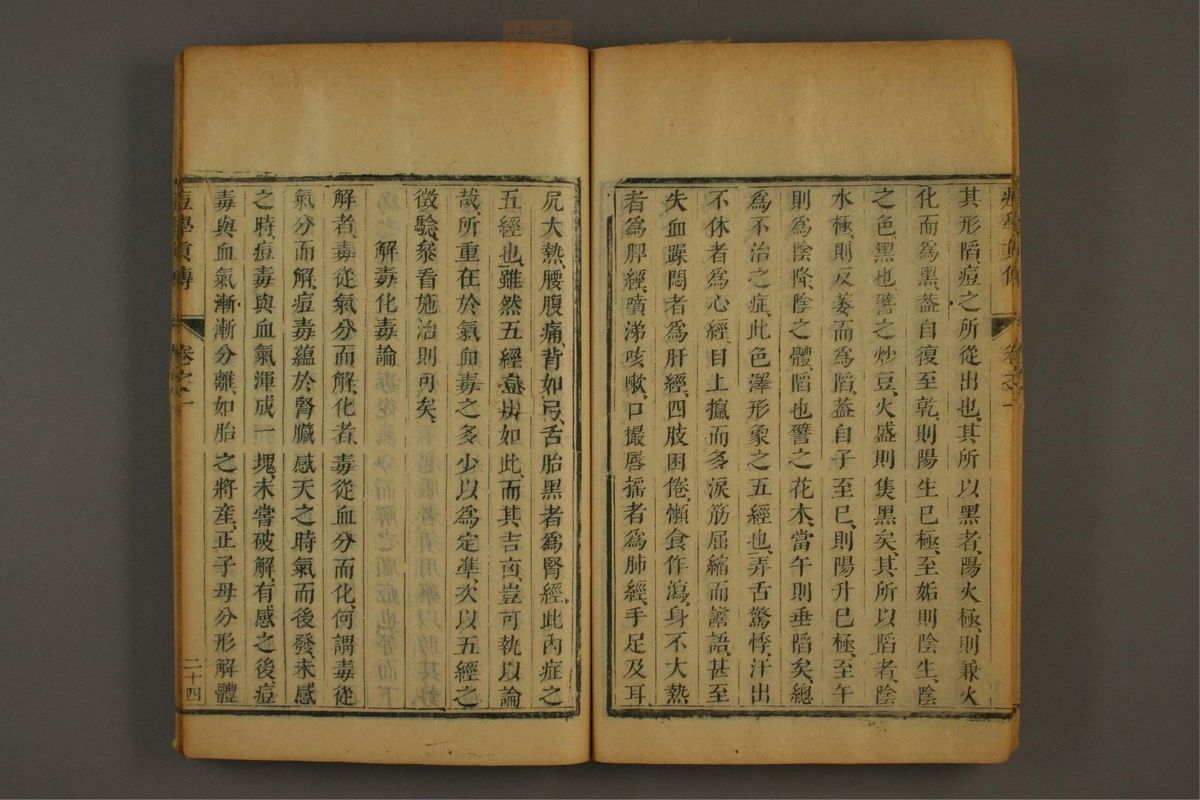 其形陷痘之所從出也其所以黑者陽火極則兼火
化而爲黑蓋自復至乾則陽生已極至姤則陰生陰
之色黑也譬之炒豆火盛則焦黑矣其所以陷者陰
水極則反萎而爲陷蓋自子至巳則陽升已極至午
則爲陰降陰之體陷也譬之花木當午則垂陷矣總
爲不治之症此色澤形象之五經也弄舌驚悸汗出
不休者爲心經目上攛而多淚筋屈縮而譫語甚至
失血躁悶者爲肝經四肢困倦懶食作瀉身不大熱
者爲脾經噴涕咳嗽口撮唇搖者爲肺經手足及耳
尻大熱腰腹痛背如弓舌胎黑者爲腎經此內症之
五經也雖然五經辨如此而其吉凶豈可執以論
哉所重在於氣血毒之多少以爲定凖次以五經之
徵驗叅看施治則可矣
解毒化毒論
解者毒從氣分而解化者毒從血分而化何謂毒從
氣分而解痘毒蘊於腎臟感天之時氣而後發未感
之時痘毒與血氣渾成一塊未嘗破解有感之後痘
毒與血氣漸漸分離如胎之將產正子母分形解體
痘學眞傳
卷之一
二十四